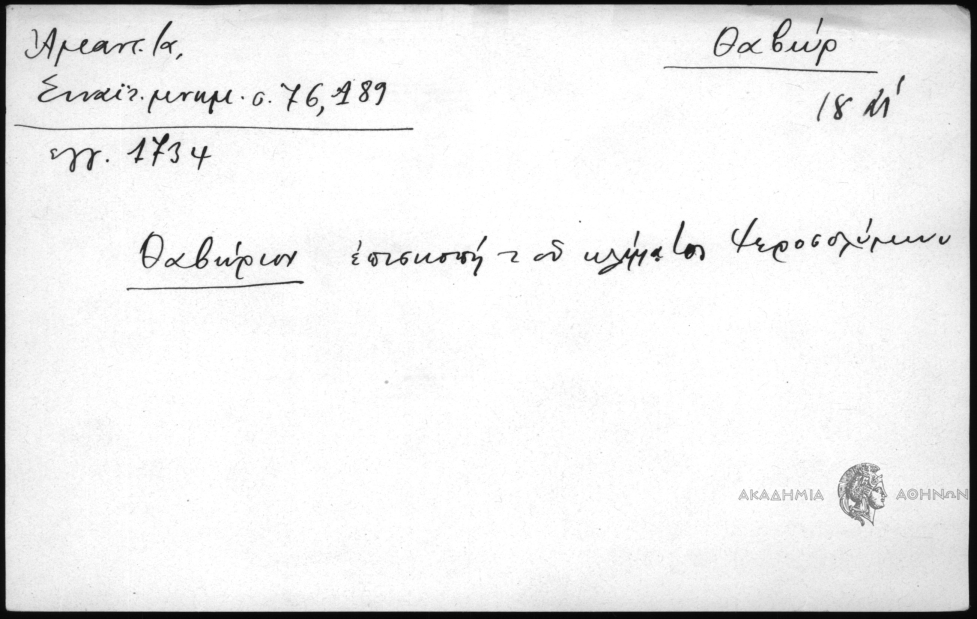 Ἀμαντ. Ια,
Σιναϊτ. μνημ. σ. 76, 189
εγγ. 1734
Θαβώρ
18 Μ'
Θαβώριον ἐπισκοπή τοῦ κλίματος Ἱεροσολύμων
ΑΚΑΔΗΜΙΑ ΑΘΗΝΩΝ